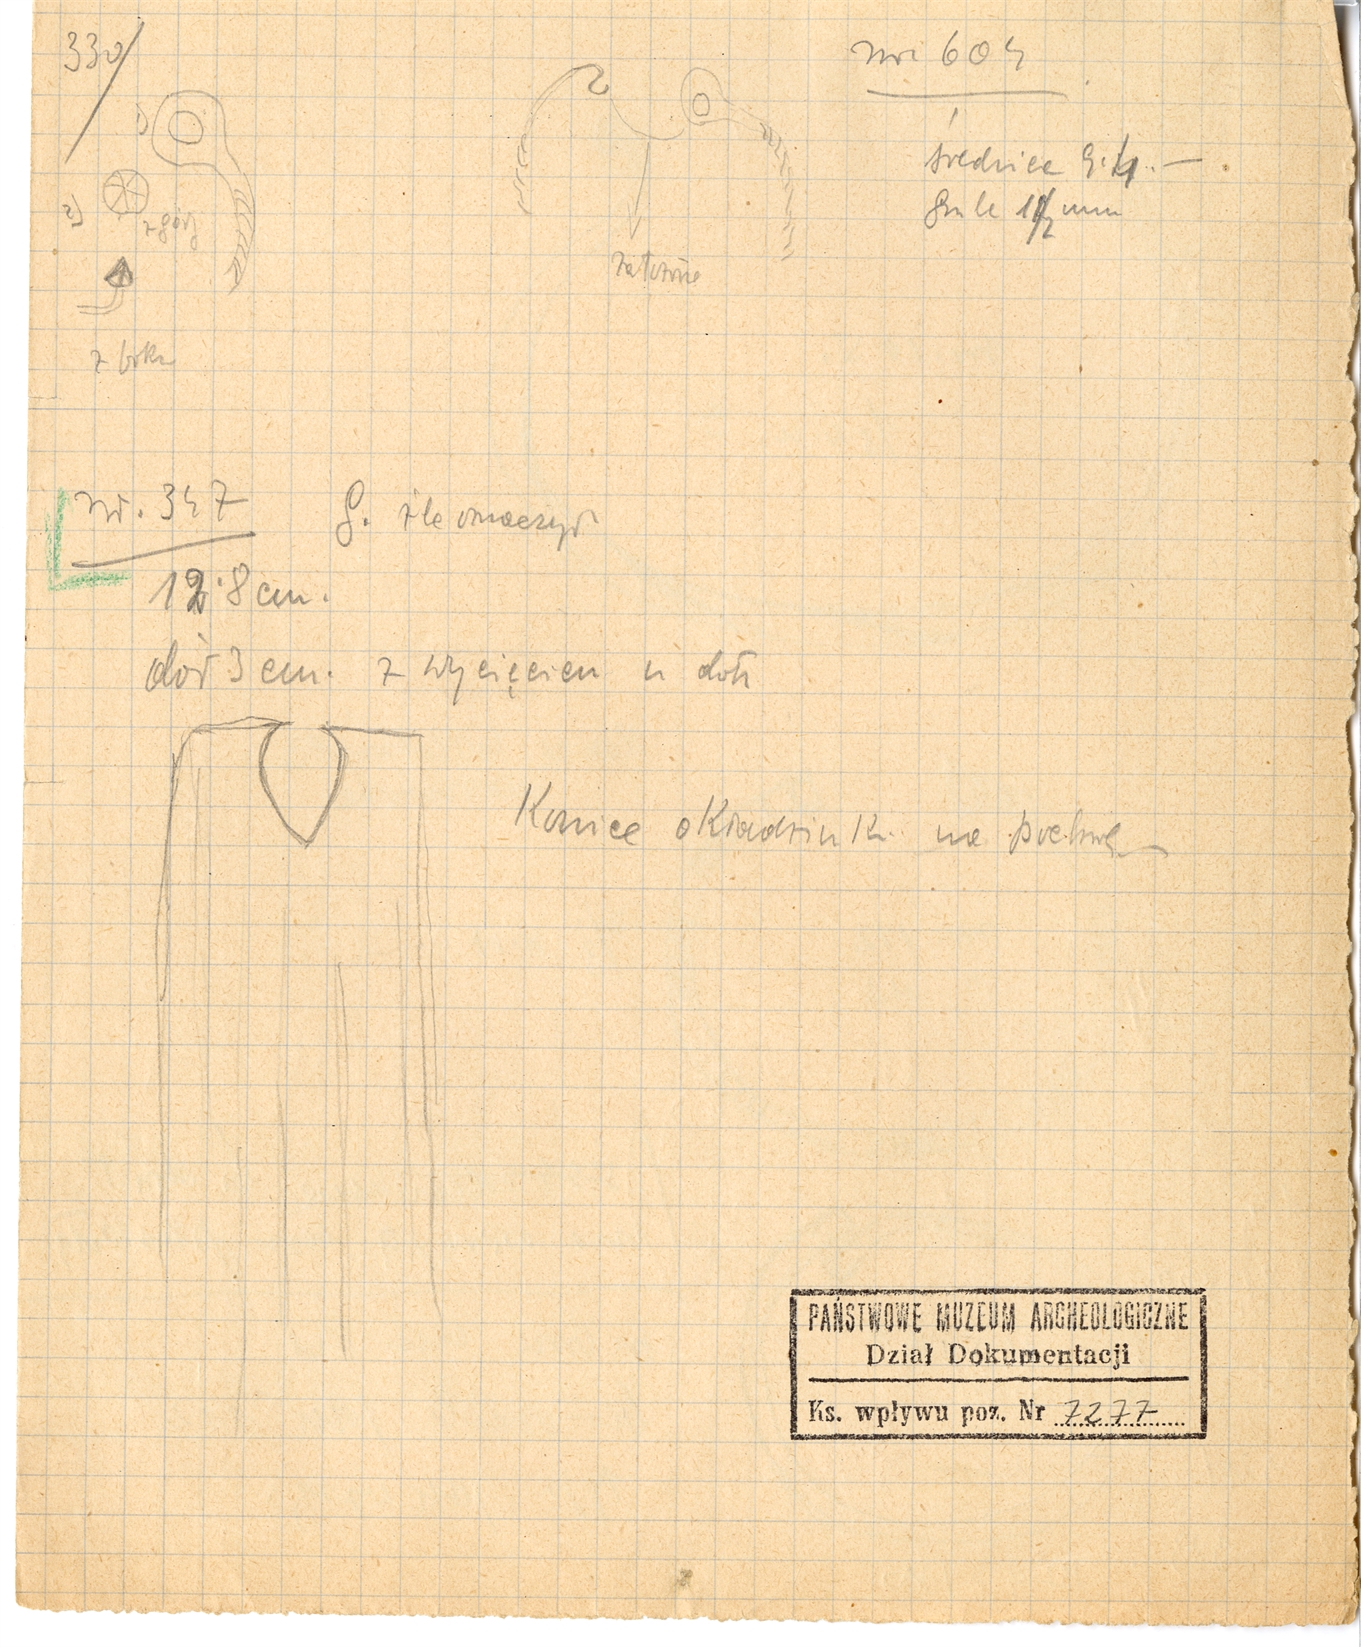 330/
1)
2)
z góry
z boku
nr 604
średnica 9.4. —
grub 1 1/2 mm
nr. 347 g. źle
12.8 cm.
doł 3 cm. z wycięciem u dołu
Koniec okładzinki na pochwę
PAŃSTWOWE MUZEUM ARCHEOLOGICZNE
Dział Dokumentacji
Ks. wpływu poz. Nr 7277